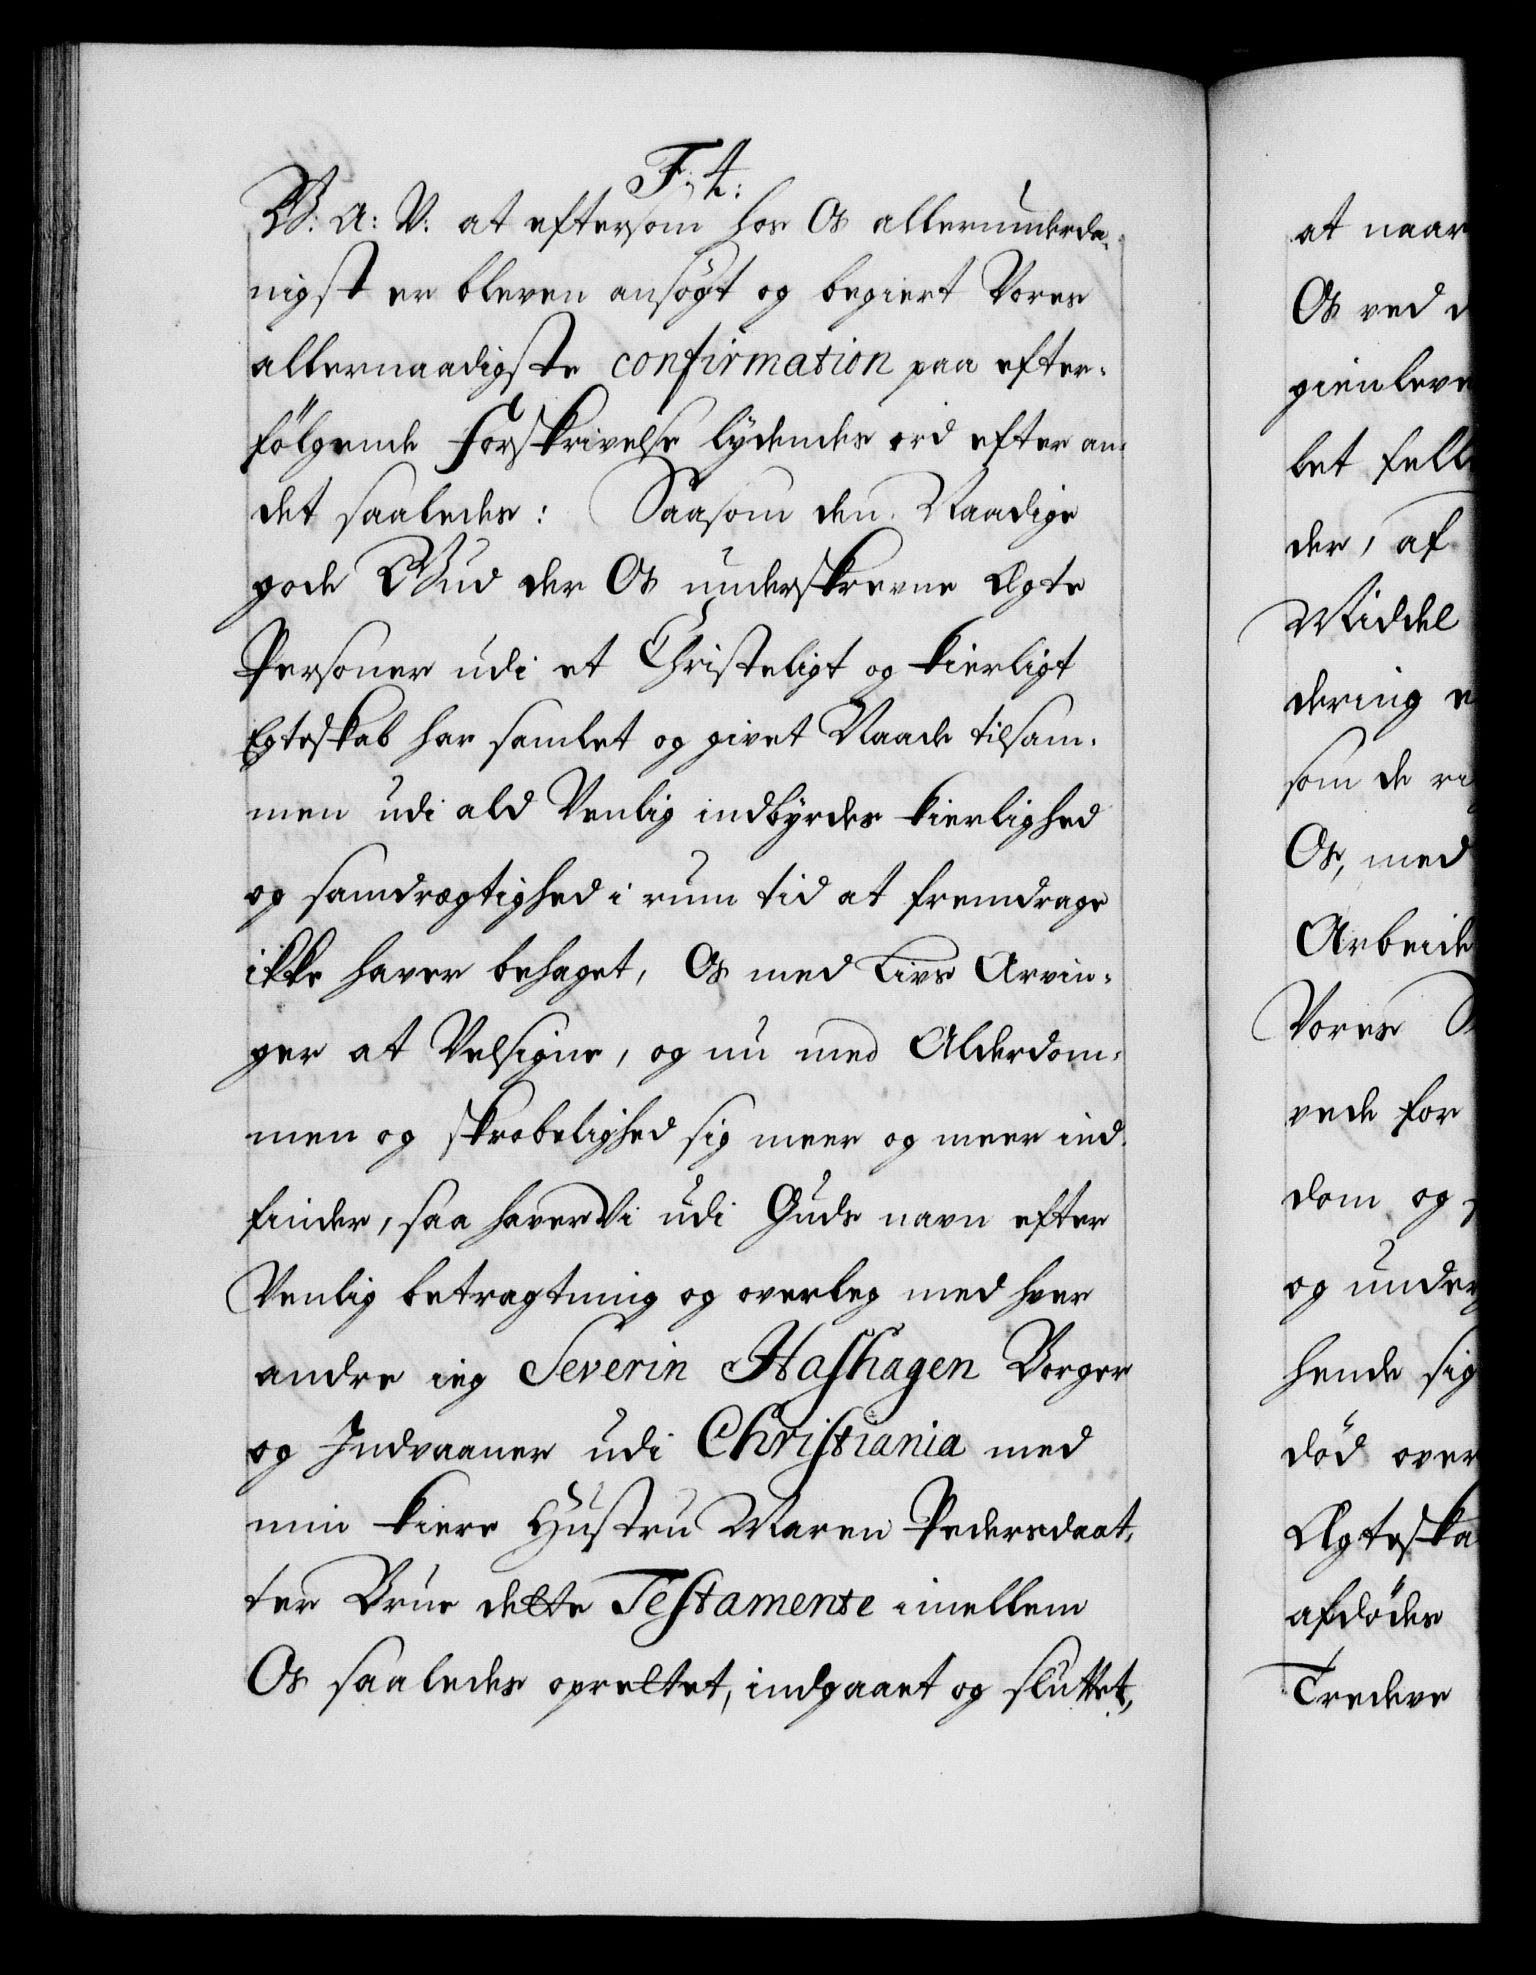 F: 4:
G: A: V: at eftersom hos Os allerunderda-
nigst er bleven ansögt og begiert Vores
allernaadigste confirmation paa efter-
fölgende forskrivelse lydendes ord efter an-
det saaledes: Saasom den Naadige
gode Gud der Os underskrevne Ægte
Personer udi et Christeligt og kierligt
Egteskab har samlet og givet Naade tilsam-
men udi ald Venlig indbyrdes kierlighed
og samdrægtighed i rum tid at fremdrage
ikke haver behaget, Os med Livs Arvin-
ger at Velsigne, og nu med Alderdom-
men og skrøbelighed sig meer og meer ind-
finder, saa haver Vi udi Guds navn efter
Venlig betragtning og overleg med hver
andre ieg Severin Hashagen Borger
og Indvaaner udi Christiania med
min kiere Hustru Maren Pedersdaat-
ter Brue dette Testamente imellem
Os saaledes oprettet, indgaaet og sluttet,
at naar
Os ved
gienleve
bet felle
der, af
Middel
dering
som de
Os, med
Arbeide
Vores
vede for
dom og
og under
hende sig
död over
Ægteska
afdödes
Tredeve